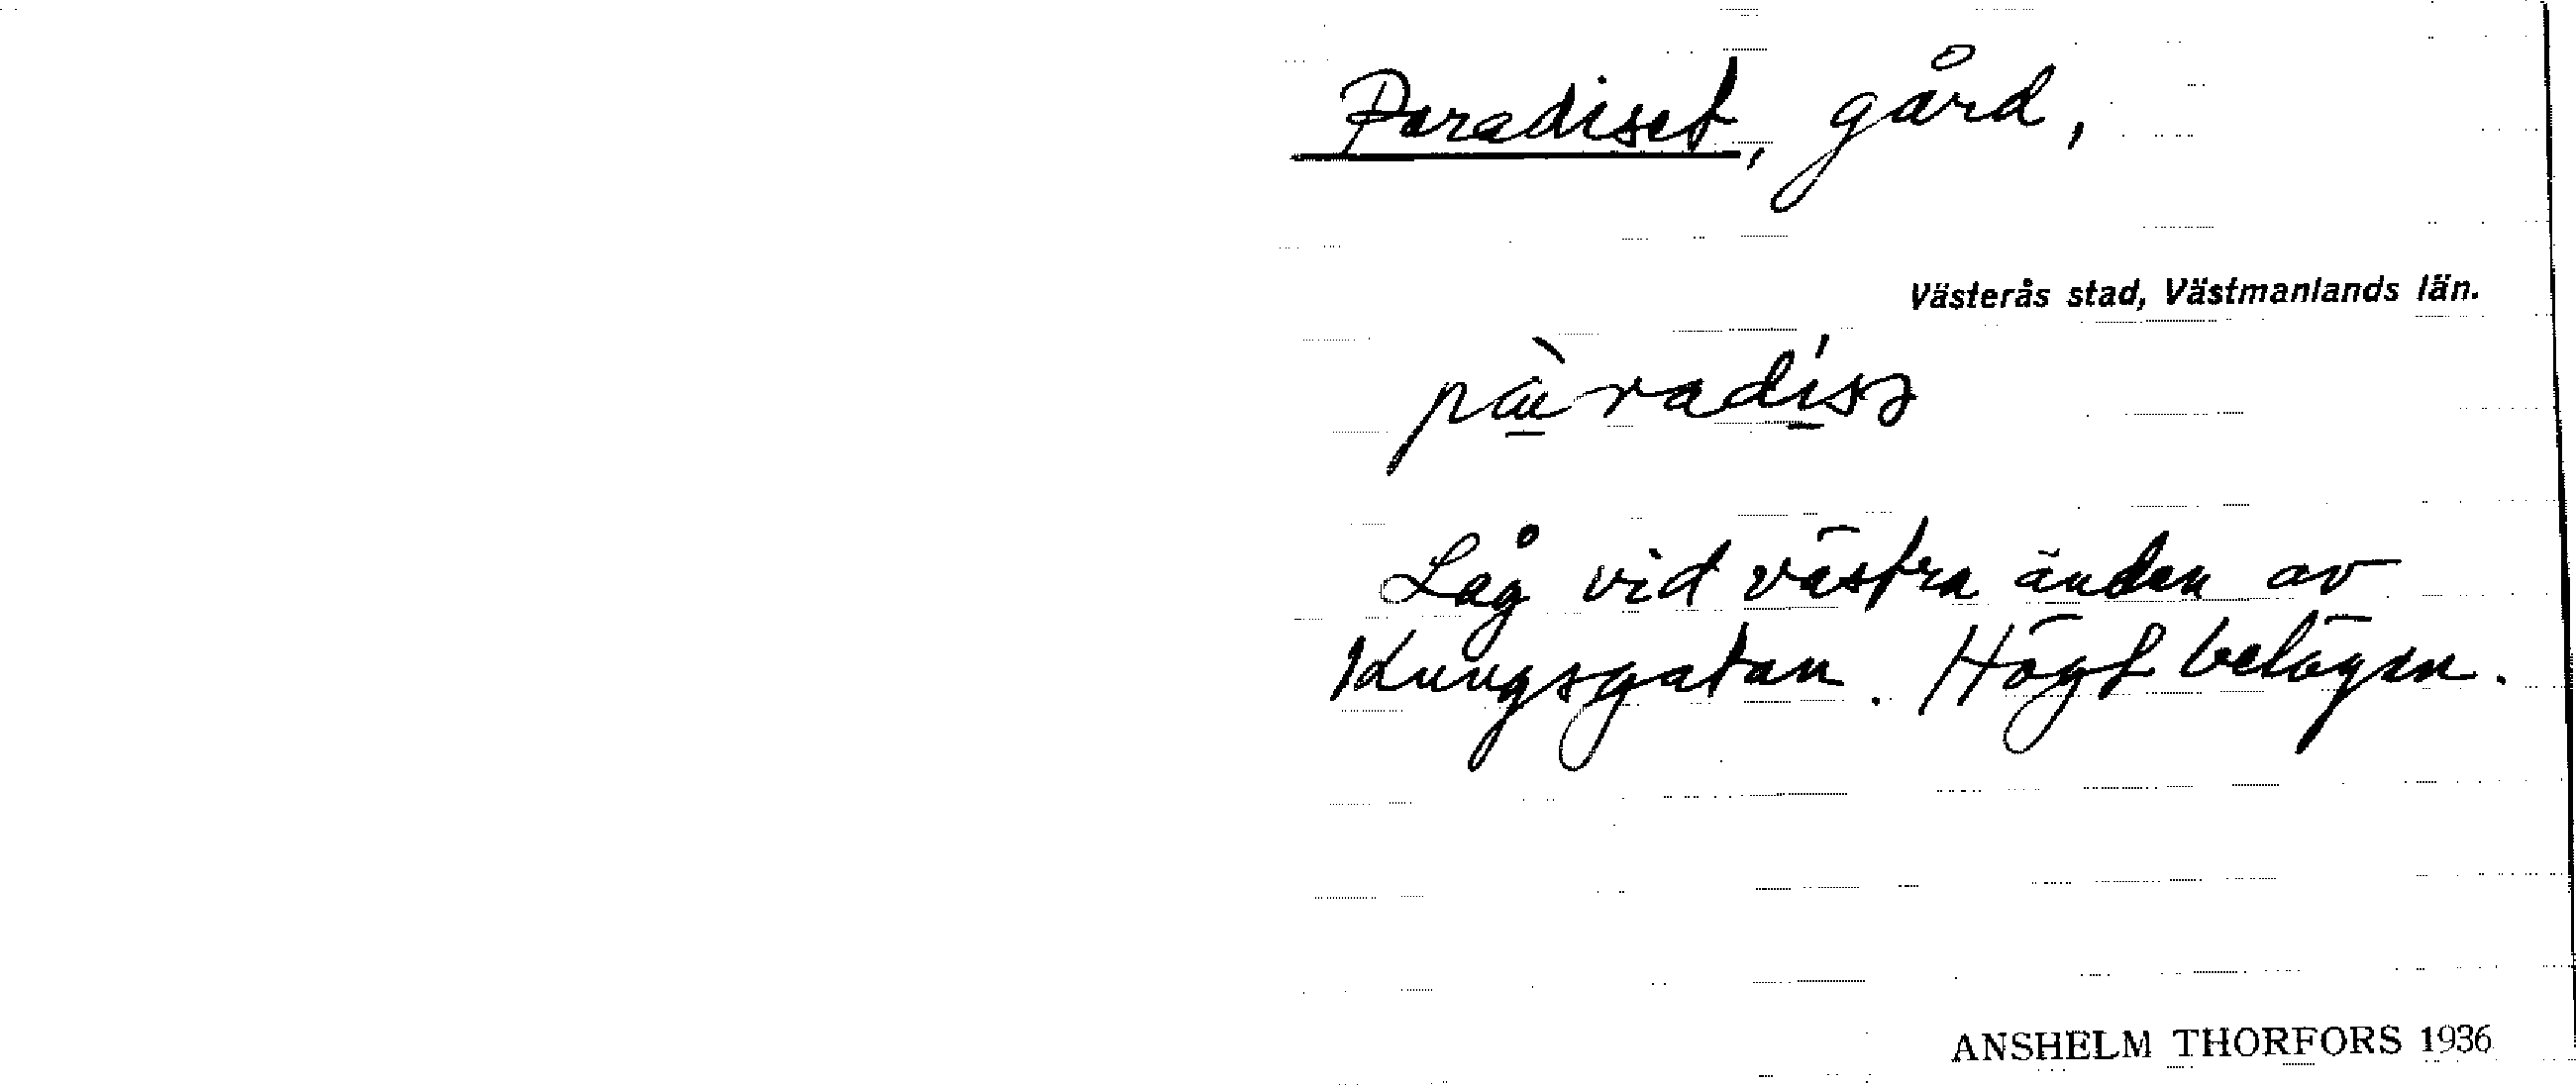 Paradiset, gård,
Västerås stad, Västmanlands län.
pàradíss
Låg vid västra änden av
Kungsgatan. Högt belägen.
ANSHELM THORFORS 1936